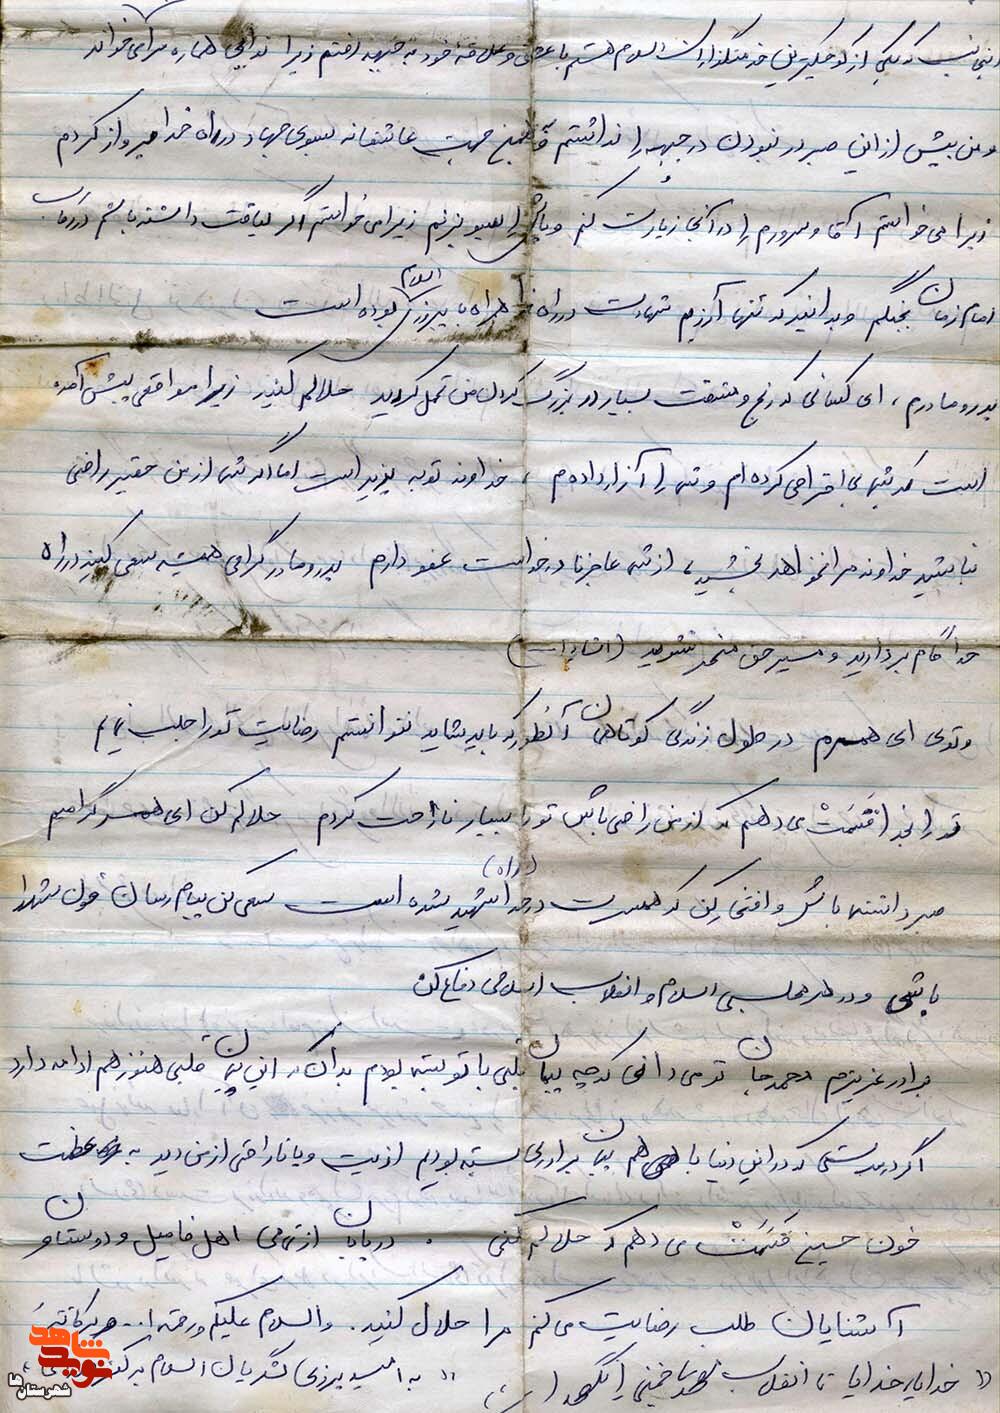 اینجانب که یکی از کوچکترین خدمتگذاران اسلام هستم با عشق و علاقه خود به جبهه رفتم زیرا ندایی همواره مرا می خواند
و من بیش از این صبر در نبودن در جبهه را نداشتم جهت عاشقانه بسوی جهاد در راه خدا پرواز کردم
زیرا می خواستم آقا و سرورم را در آنجا زیارت کنم و بزنم زیرا می خواستم اگر لیاقت داشته باشم در رکاب
امام زمان بجنگم و بدانید که تنها آرزویم شهادت در راه خدا همراه با پیروزی اسلام بوده است
پدر و مادرم ، ای کسانی که رنج و مشقت بسیار در بزرگ کردن من تحمل کردید حلالم کنید زیرا مواقعی پیش آمده
است که به شما بی احترامی کرده ام و شما را آزار داده ام ، خداوند توبه پذیر است اما اگر شما از من حقیر راضی
نباشید خداوند مرا نخواهد بخشید ، از شما عاجزانه درخواست عفو دارم پدر و مادر گرامی همیشه سعی کنید در راه
خدا گام بردارید و از مسیر حق منحرف نشوید (انشاءالله)
و توی ای همسرم در طول زندگی کوتاهمان آنطور که باید شاید نتوانستم رضایت تو را جلب نمایم
تو را بخدا قسمت می دهم که از من راضی باش تو را بسیار ناراحت کردم حلالم کن ای همسر گرامیم
صبر داشته باش و افتخار کن که همسرت در (راه) خدا شهید شده است سعی کن پیام رسان خون شهدا
باشی و در هر مجلسی اسلام و انقلاب اسلامی دفاع کن
برادر عزیزم محمد جان تو می دانی که چه پیمان قلبی با تو بسته بودم بدان که این پیمان قلبی هنوز هم ادامه دارد
اگر در مدتی که در این دنیا با هم پیمان برادری بسته بودیم اذیت و یا ناراحتی از من دید به عظمت
خون حسین قسمت می دهم که حلالم کنی . در پایان از تمامی اهل فامیل و دوستان و
آشنایان طلب رضایت می کنم مرا حلال کنید . والسلام علیکم و رحمة الله و برکاته
« خدایا خدایا تا انقلاب مهدی خمینی را نگهدار » « به امید پیروزی لشگریان اسلام بر کفر »
شاهد
نوید
شهرستان‌ها